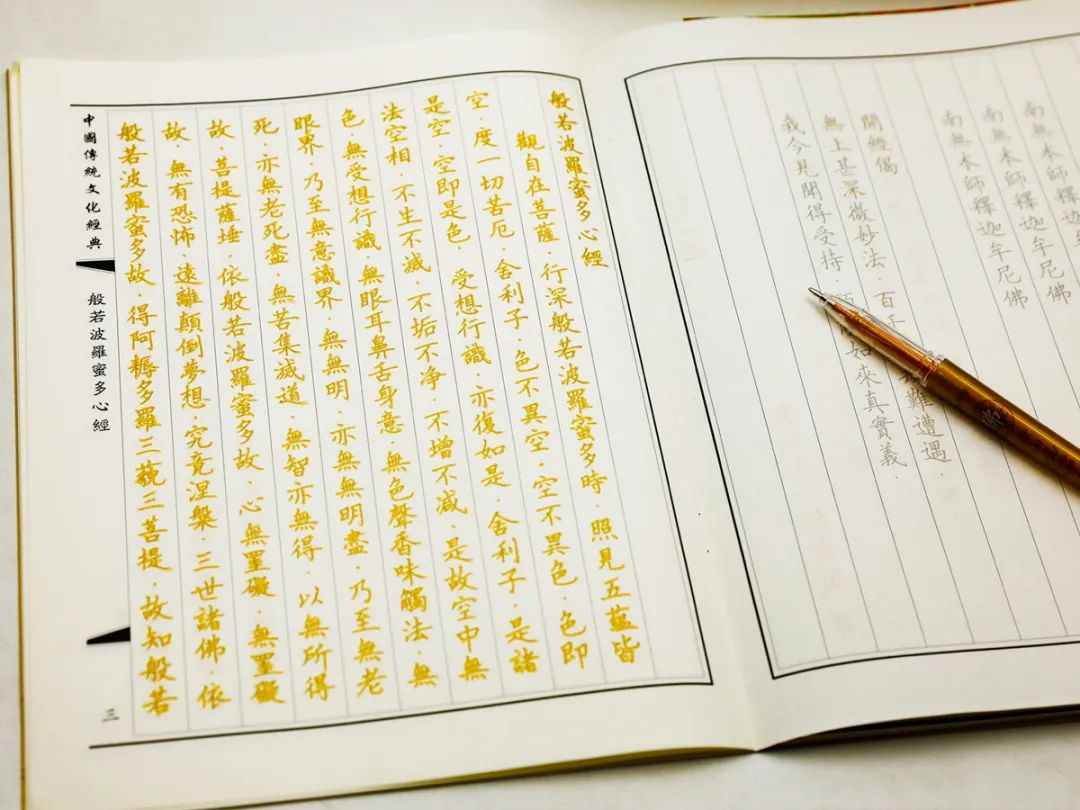 南無本師釋迦牟
南無本師釋迦牟尼佛
南無本師釋迦牟尼佛
開經偈
無上甚深微妙法·百千難遭遇·
我今見聞得受持·如來真實義·
般若波羅蜜多心經
觀自在菩薩·行深般若波羅蜜多時·照見五蘊皆
空·度一切苦厄·舍利子·色不異空·空不異色·色即
是空·空即是色·受想行識·亦復如是·舍利子·是諸
法空相·不生不滅·不垢不净·不增不減·是故空中無
色·無受想行識·無眼耳鼻舌身意·無色聲香味觸法·無
眼界·乃至無意識界·無無明·亦無無明盡·乃至無老
死·亦無老死盡·無苦集滅道·無智亦無得·以無所得
故·菩提薩埵·依般若波羅蜜多故·心無罣礙·無罣礙
故·無有恐怖·遠離顛倒夢想·究竟涅槃·三世諸佛·依
般若波羅蜜多故·得阿耨多羅三藐三菩提·故知般若
中國傳統文化經典
般若波羅蜜多心經
三